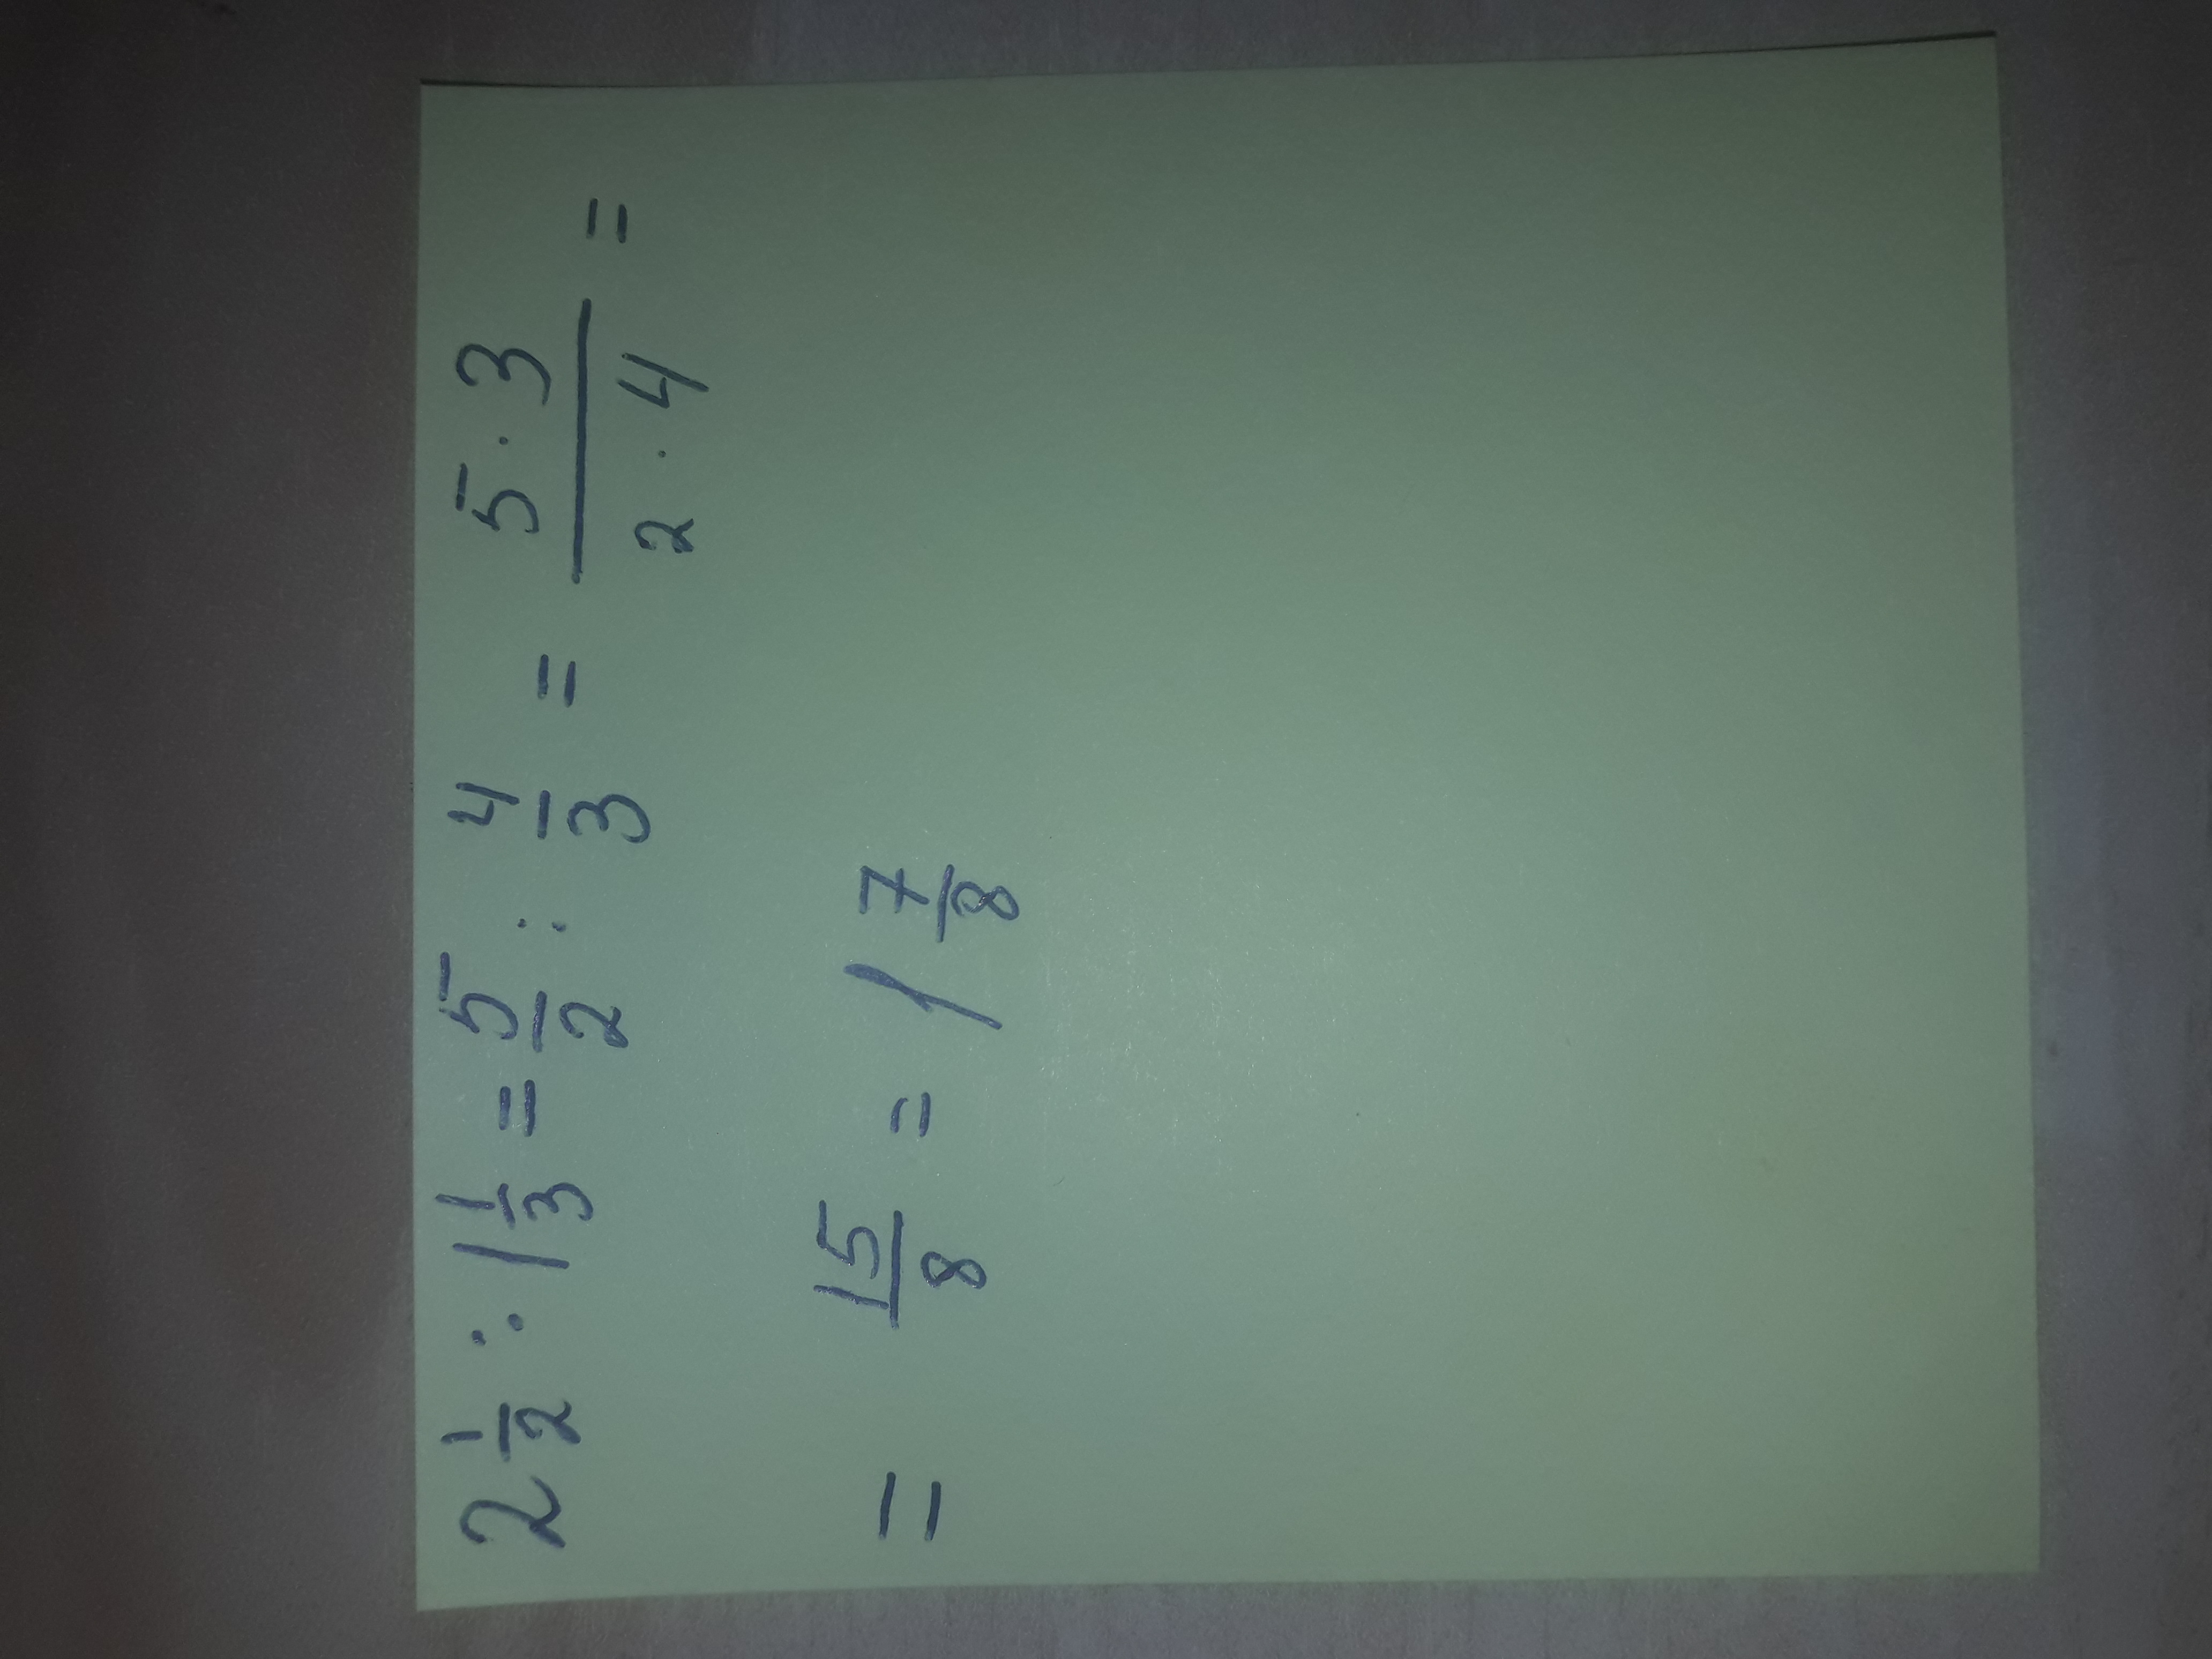 2 1/2 : 1 1/3 = 5/2 : 4/3 = 5·3/2·4 =
= 15/8 = 1 7/8